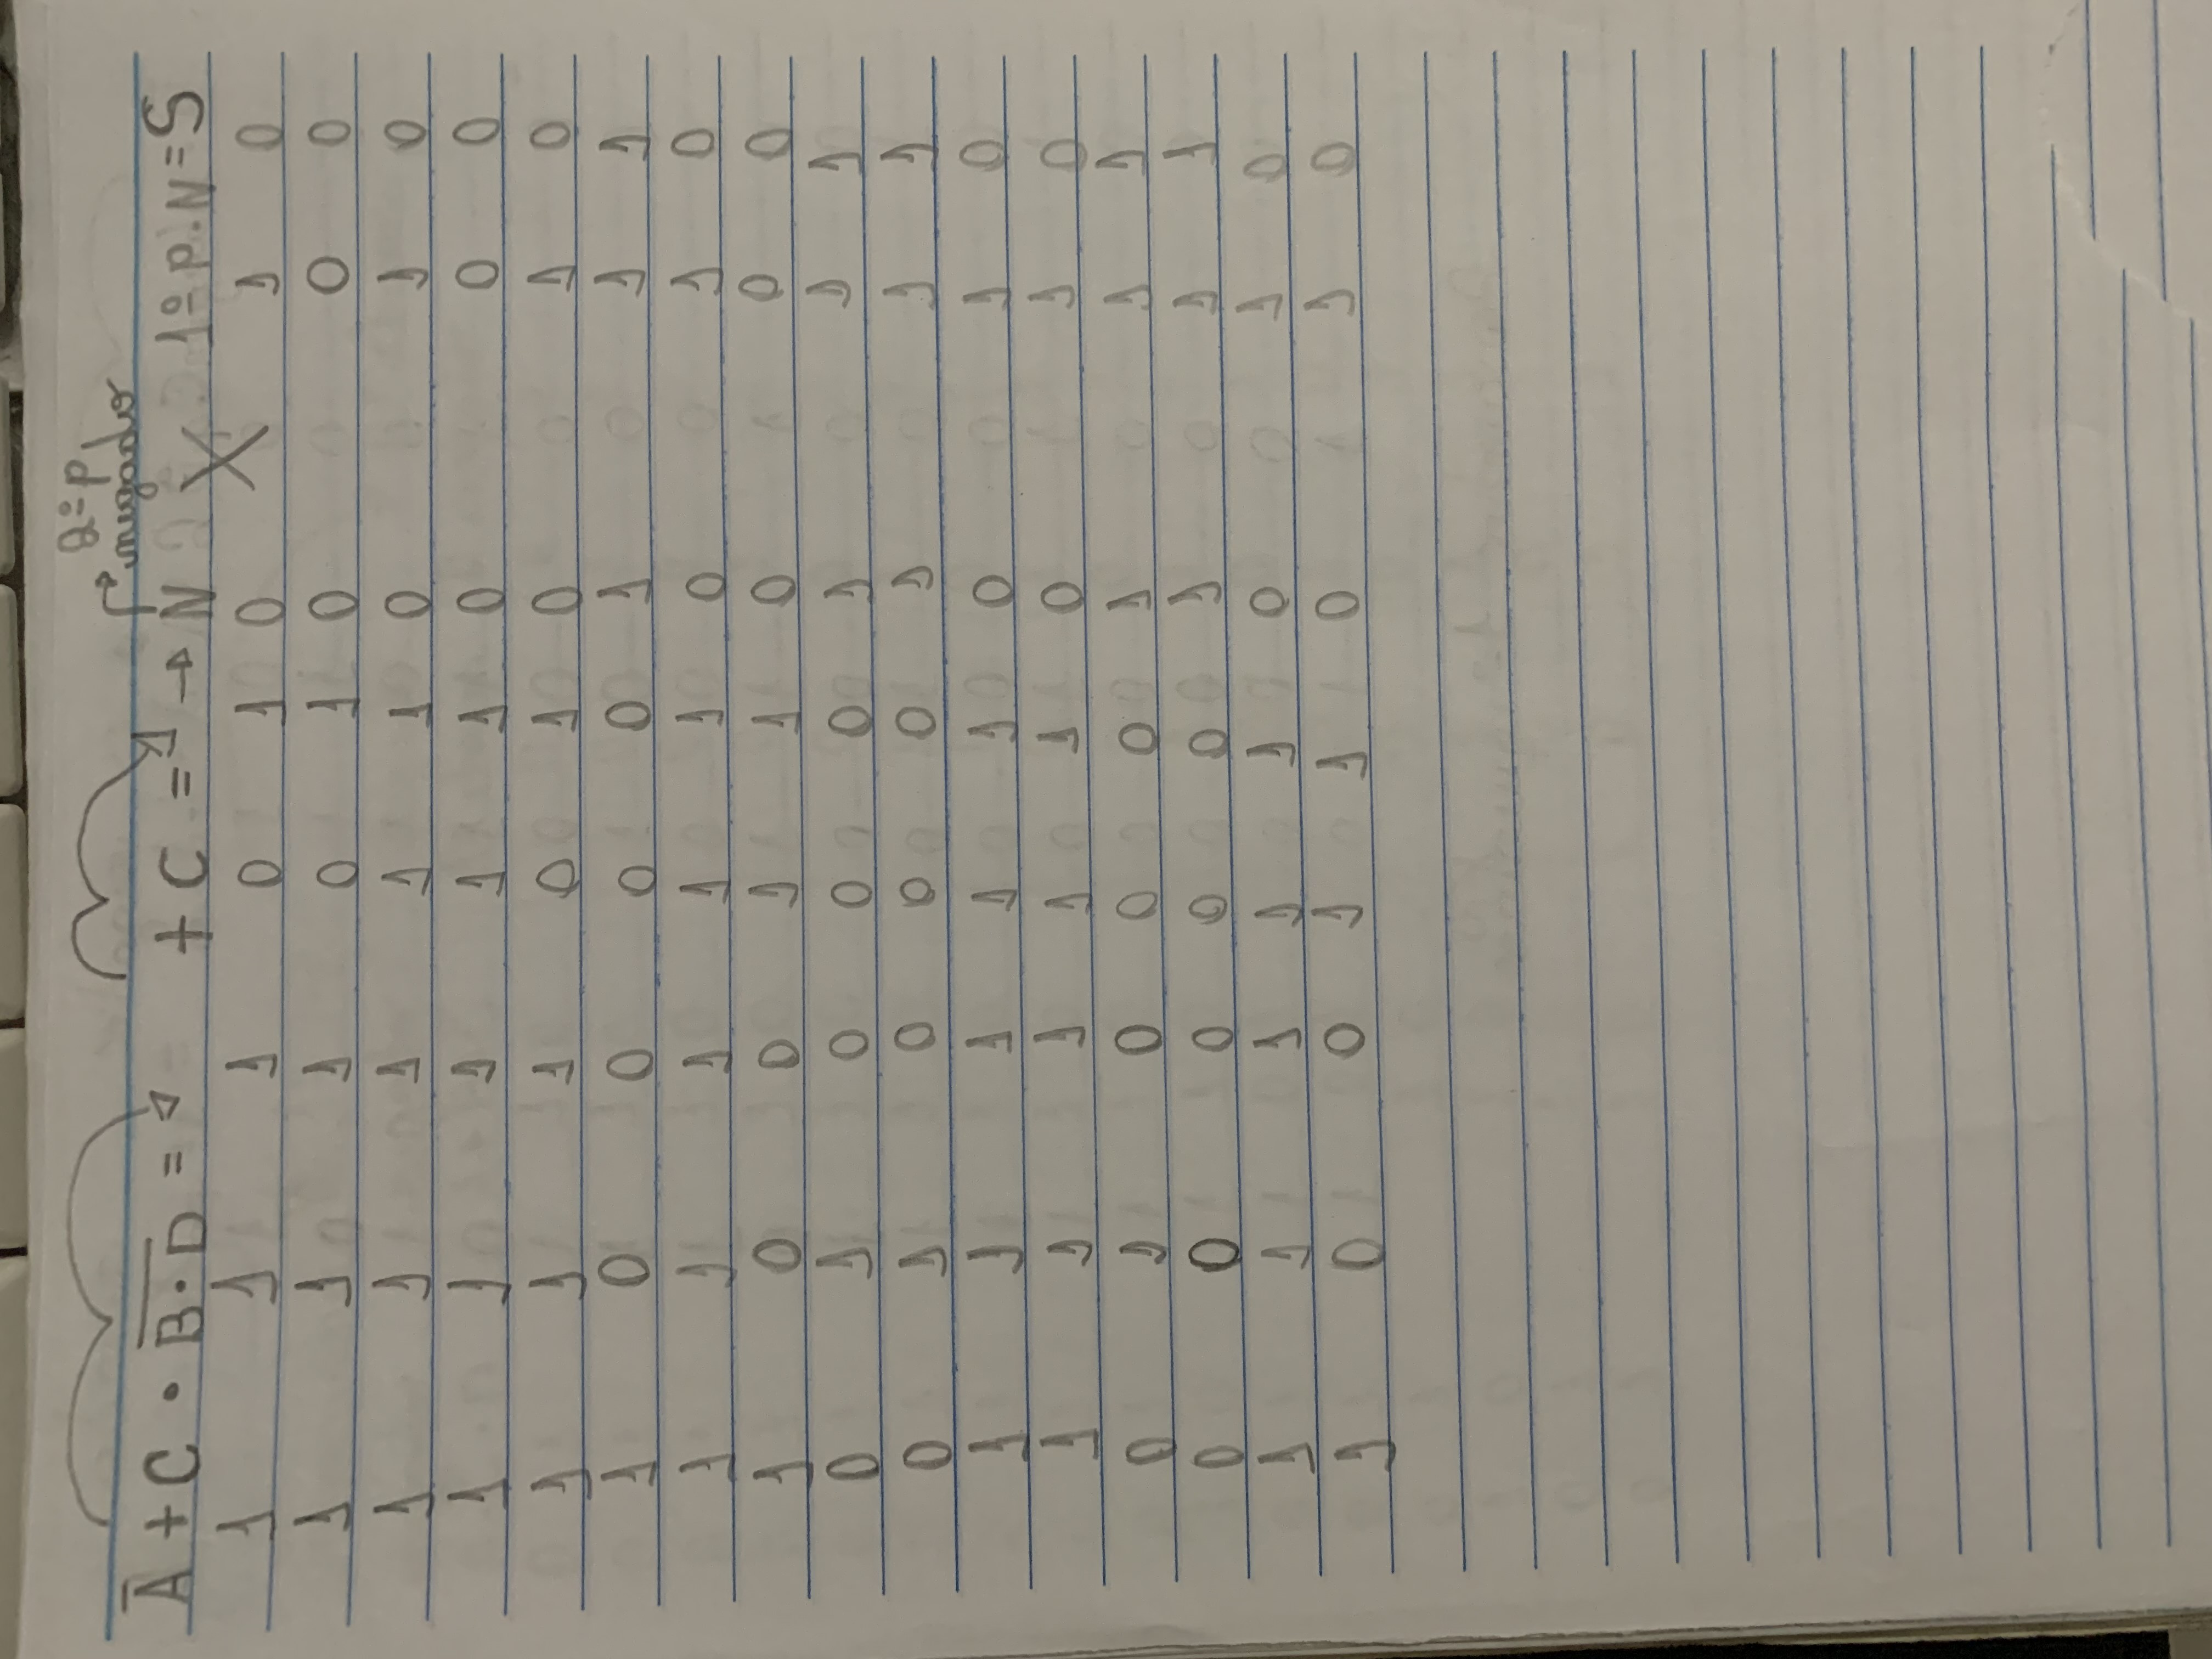 2º p,
negado
Ā + C · B̅·̅D̅ = + C = → N X 1º p. N = S
1 1 1 0 1 0 1 0
1 1 1 0 1 0 0 0
1 1 1 1 1 0 1 0
1 1 1 1 1 0 0 0
1 1 1 0 1 0 1 0
1 0 0 0 0 1 1 1
1 1 1 1 1 0 1 0
1 0 0 1 1 0 0 0
0 1 0 0 0 1 1 1
0 1 0 0 0 1 1 1
1 1 1 1 1 0 1 0
1 1 1 1 1 0 1 0
0 1 0 0 0 1 1 1
0 0 0 0 0 1 1 1
1 1 1 1 1 0 1 0
1 0 0 1 1 0 1 0